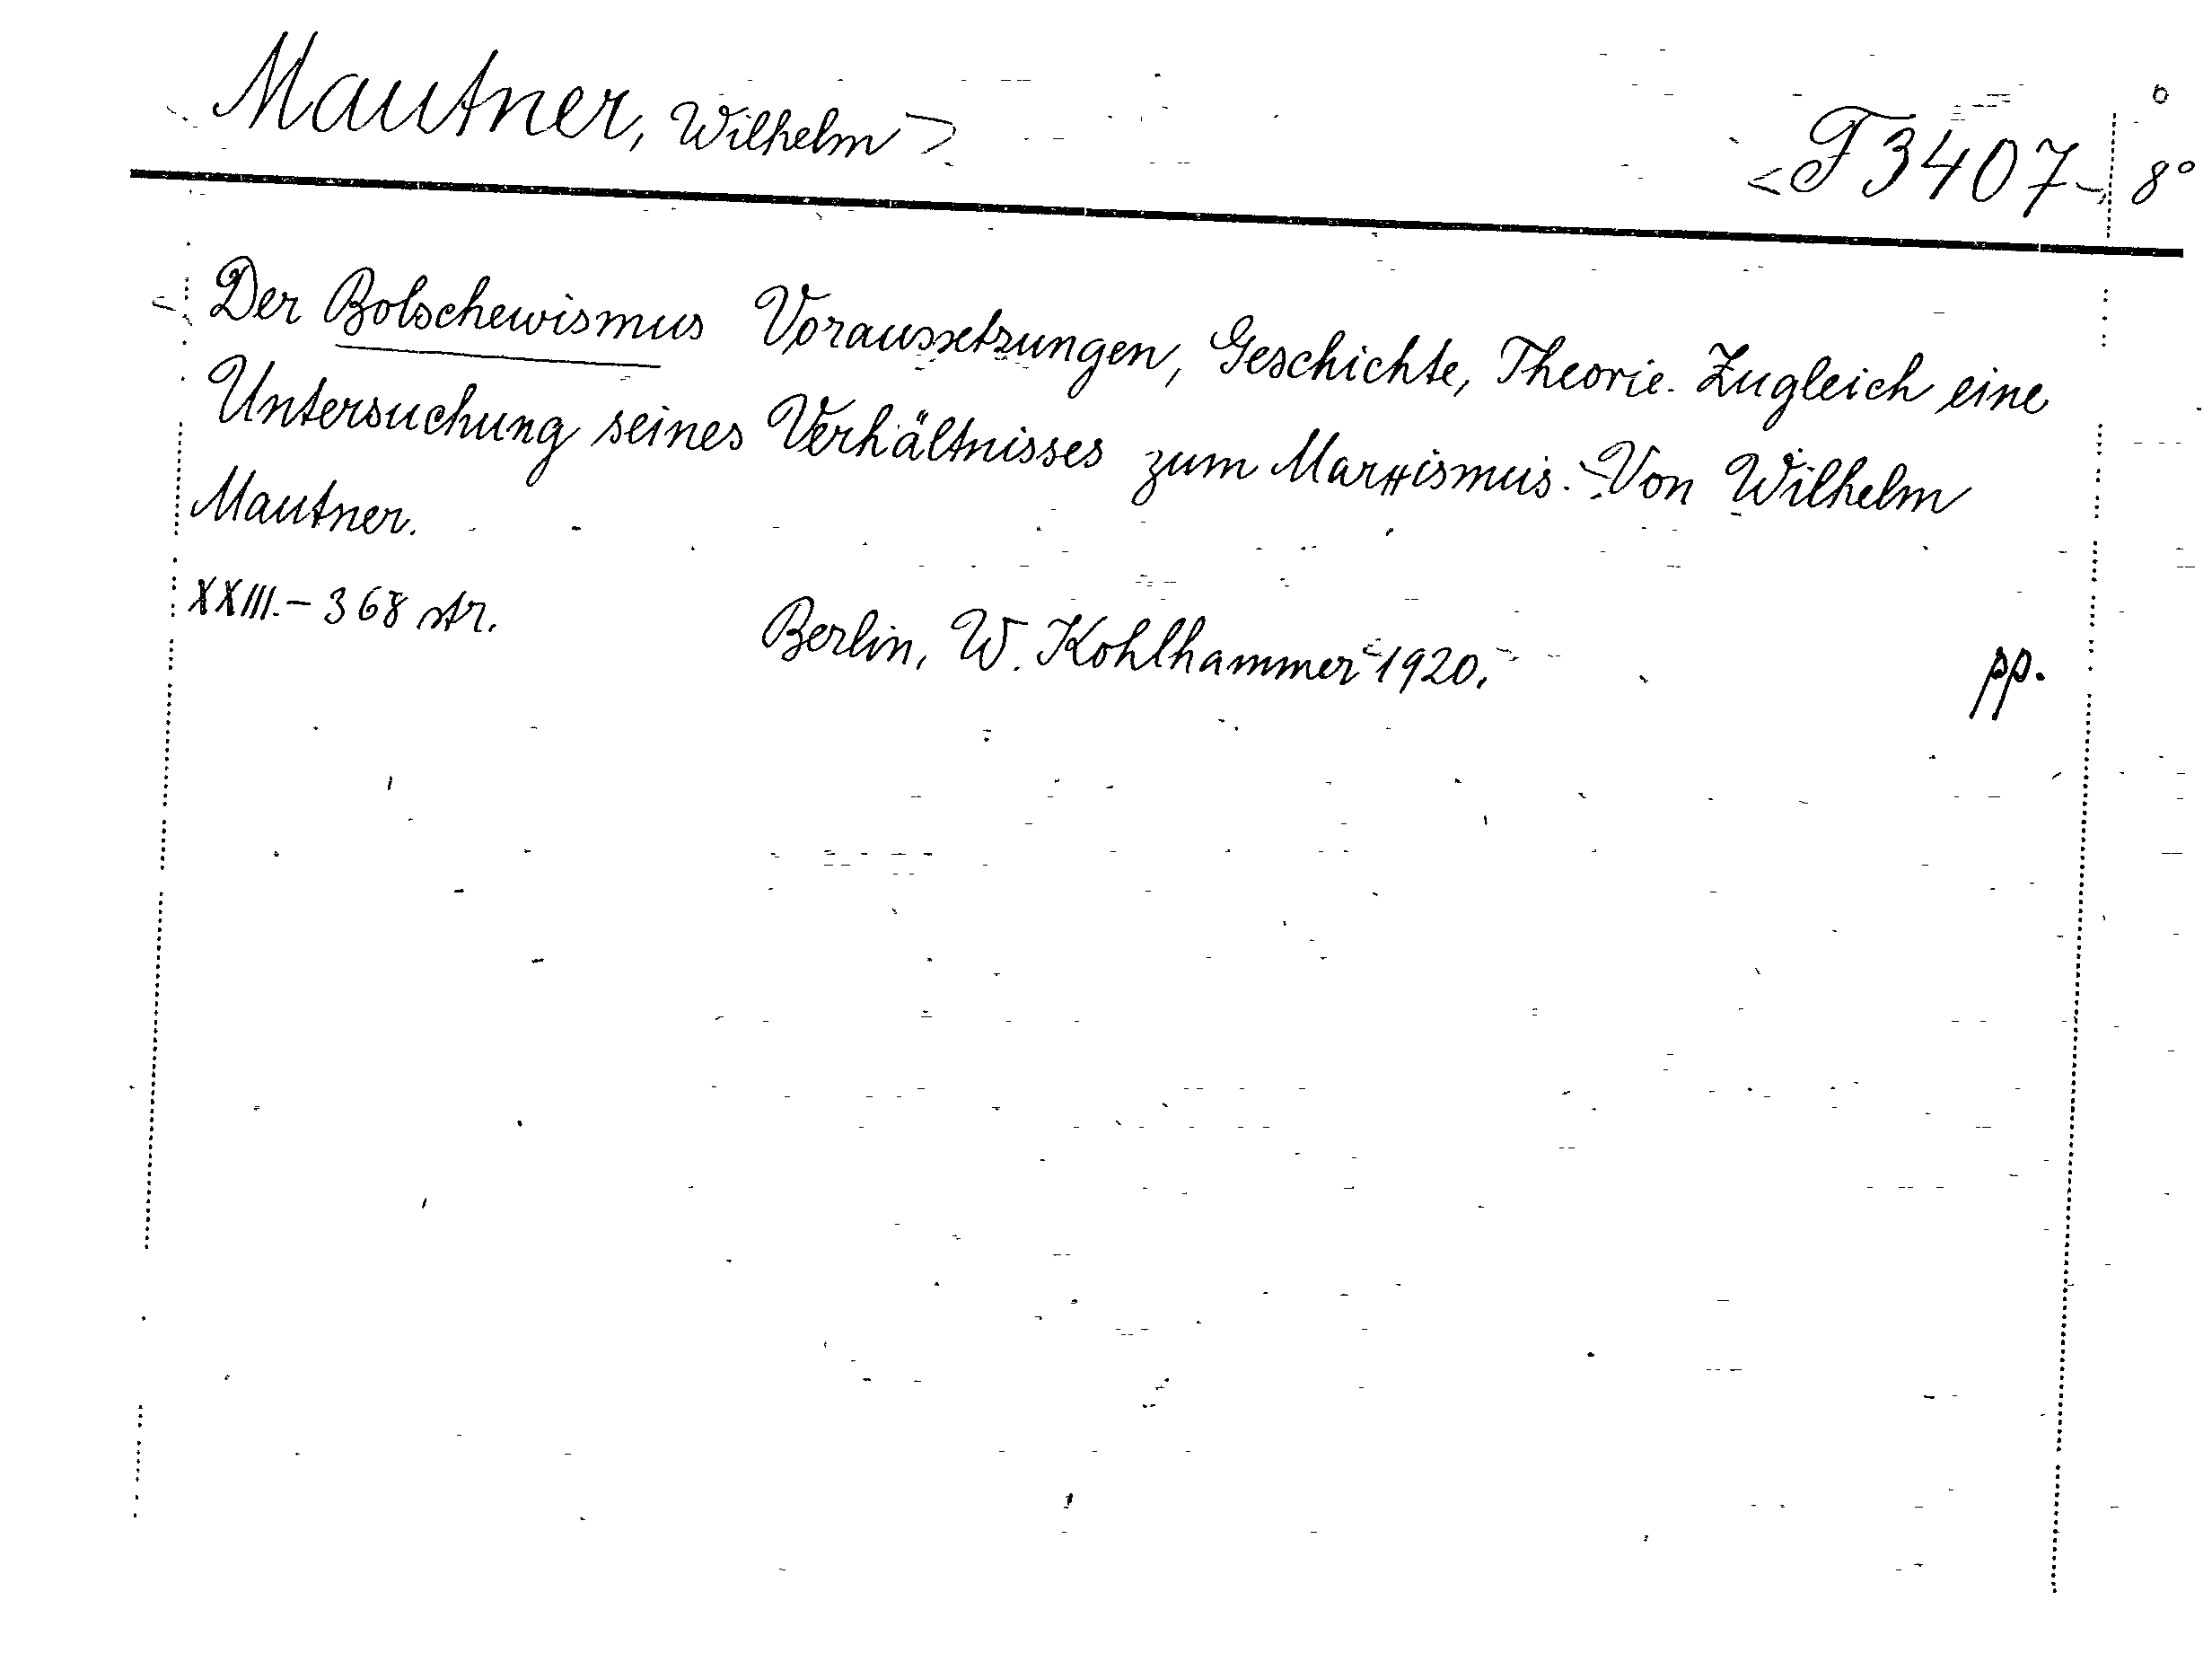 Mautner, Wilhelm
F 3407 8°
Der Bolschewismus Voraussetzungen, Geschichte, Theorie. Zugleich eine
Untersuchung seines Verhältnisses zum Marxismus. Von Wilhelm
Mautner.
XXIII.- 368 str.
Berlin, W. Kohlhammer 1920.
pp.